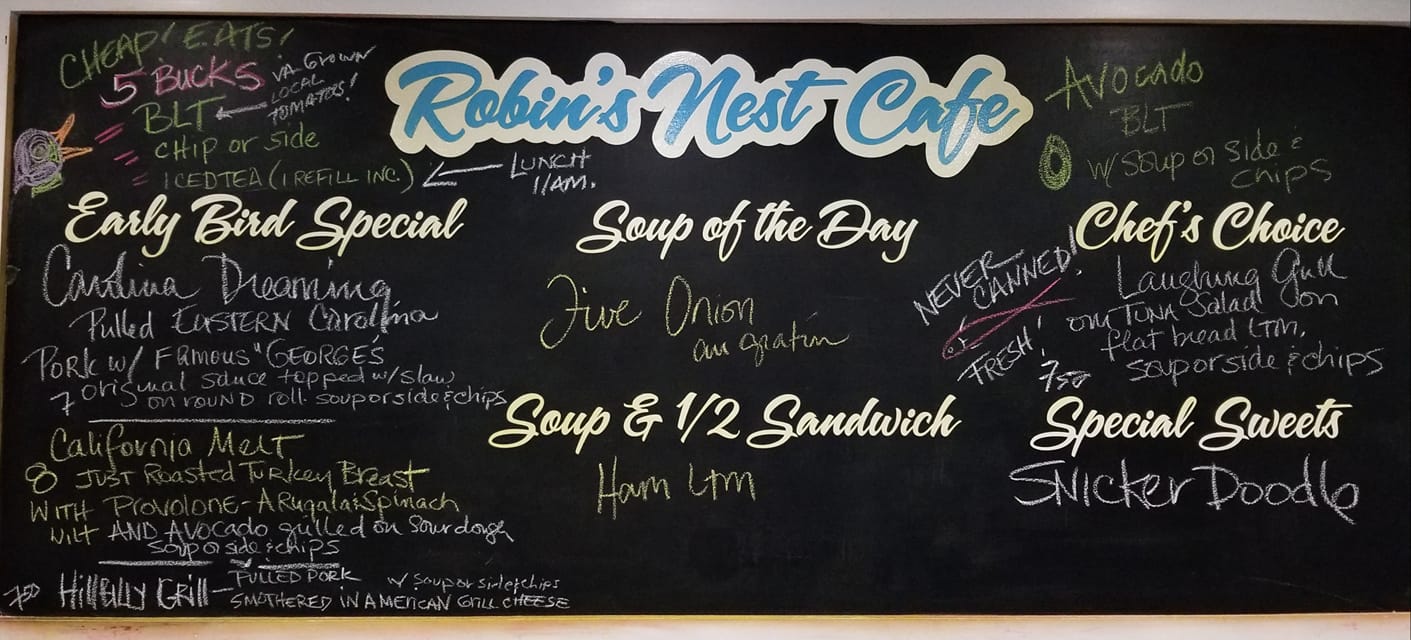 CHEAP! EATS!
5 BUCKS
VA-GROWN
LOCAL
TOMATOES!
BLT
CHIP or side
ICED TEA (1 REFILL INC.)
LUNCH
11AM.
Robin's Nest Cafe
AVOCADO
BLT
w/ soup or side &
chips
Early Bird Special
Carolina Dreaming
Pulled EASTERN Carolina
PORK w/ FAMOUS "GEORGE'S
original sauce topped w/ slaw
7 on ROUND roll. soup or side & chips
California Melt
8 JUST Roasted Turkey Breast
WITH PROVOLONE - ARugala & Spinach
WILT AND AVOCADO grilled on Sourdough
Soup or side & chips
7.50 HillBilly Grill - PULLED PORK w/ soup or side & chips
SMOTHERED IN AMERICAN GRILL CHEESE
Soup of the Day
Five Onion
au gratin
Soup & 1/2 Sandwich
Ham LTM
Chef's Choice
NEVER
CANNED!
FRESH!
Laughing Gull
our TUNA Salad on
flat bread LTM.
7.50 soup or side & chips
Special Sweets
SNicker Doodle